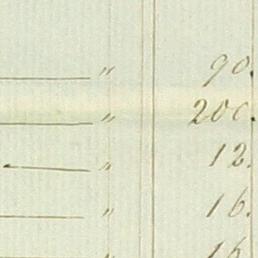 " 90.
" 200.
" 12.
" 16.